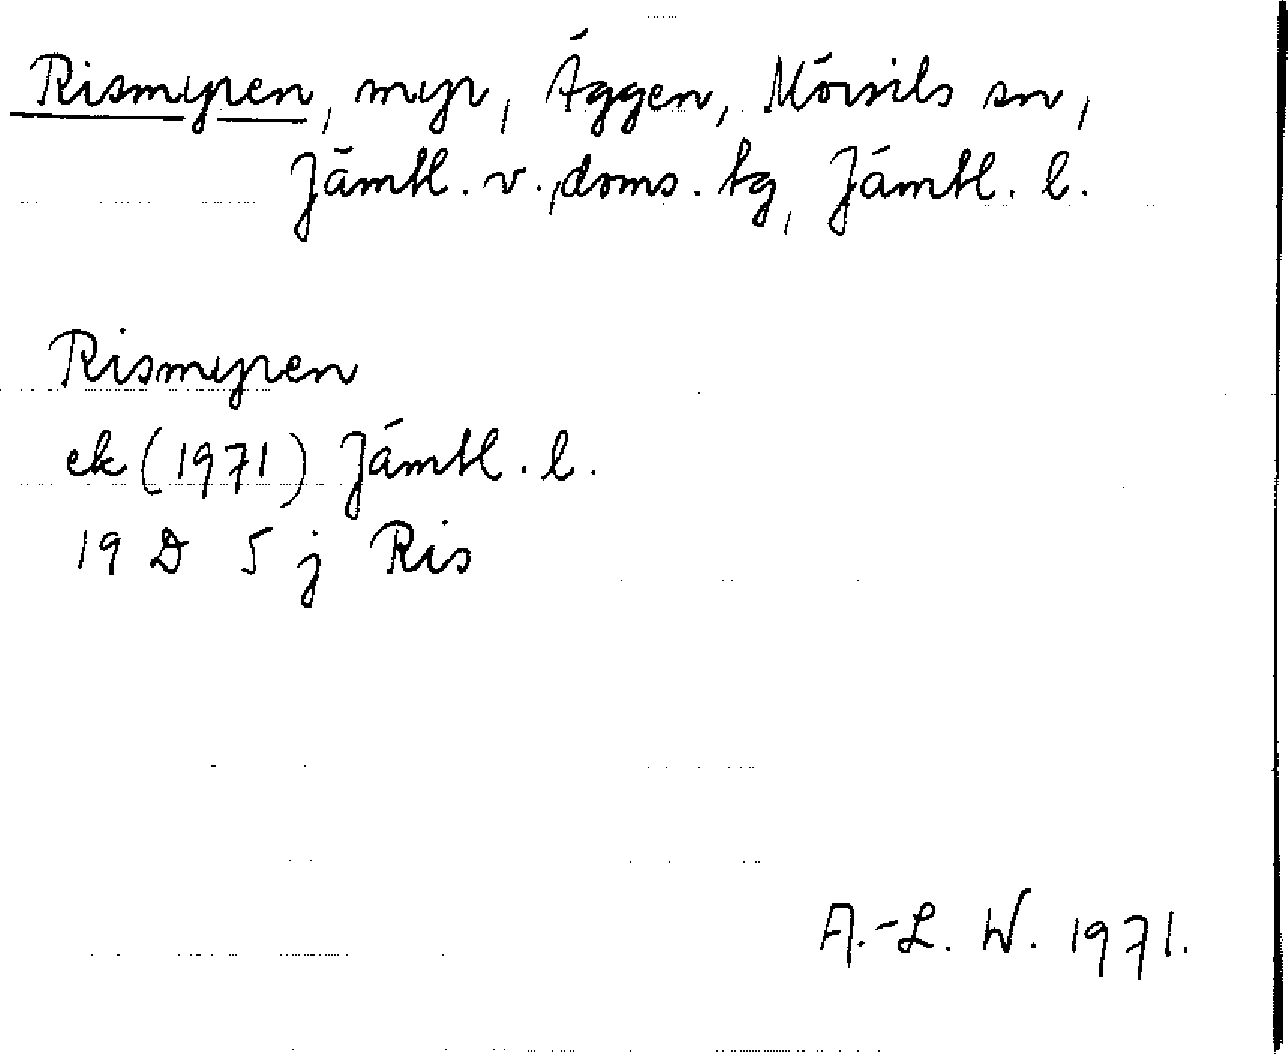 Rismyren, myr, Äggen, Mörsils sn,
Jämtl. v. doms. tg, Jämtl. l.
Rismyren
ek (1971) Jämtl. l.
19 D 5 j Ris
A.-L. W. 1971.